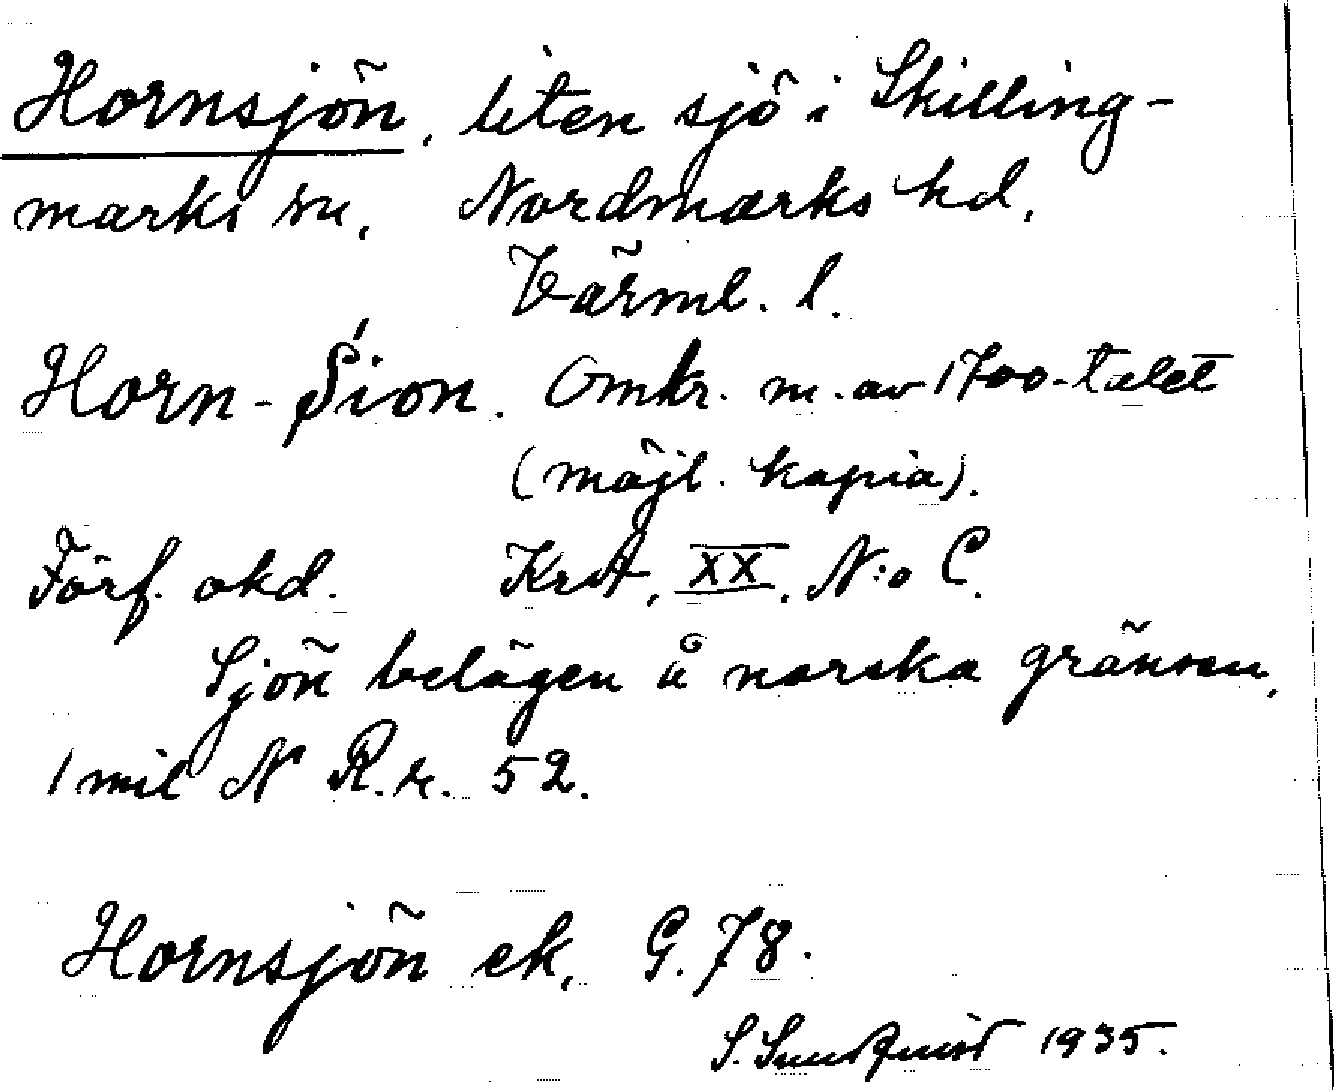 Hornsjön, liten sjö i Skilling-
marks sn, Nordmarks hd,
Värml. l.
Horn-Siön. Omkr. m. av 1700-talet
(möjl. kopia).
Förf. okd. KrA, XX, N:o C.
Sjön belägen å norska gränsen,
1 mil N R.r. 52.
Hornsjön ek. G. 78.
S. Sundquist 1935.